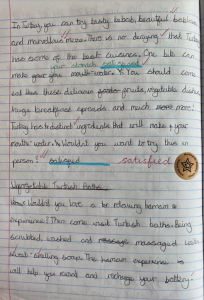 In Turkey, you can try tasty kebab, beautiful baklava
and marvellous meze. There is no denying that Turkey
has some of the best cuisines. One bite can
make your mouth water. You should come
eat this these delicious garden fruits, vegetable dishes
huge breakfast spreads and much more more!
Turkey has delicious ingredients that will make your
mouths water. Wouldn't you want to try this in
person? satisfied satisfied
Unforgettable Turkish Baths
How Wouldn't you love a relaxing hamam
experience? Then come visit Turkish baths. Being
scrubbed, washed and massaged with
sweet-smelling soap. The hamam experience
will help you reset and recharge your battery!